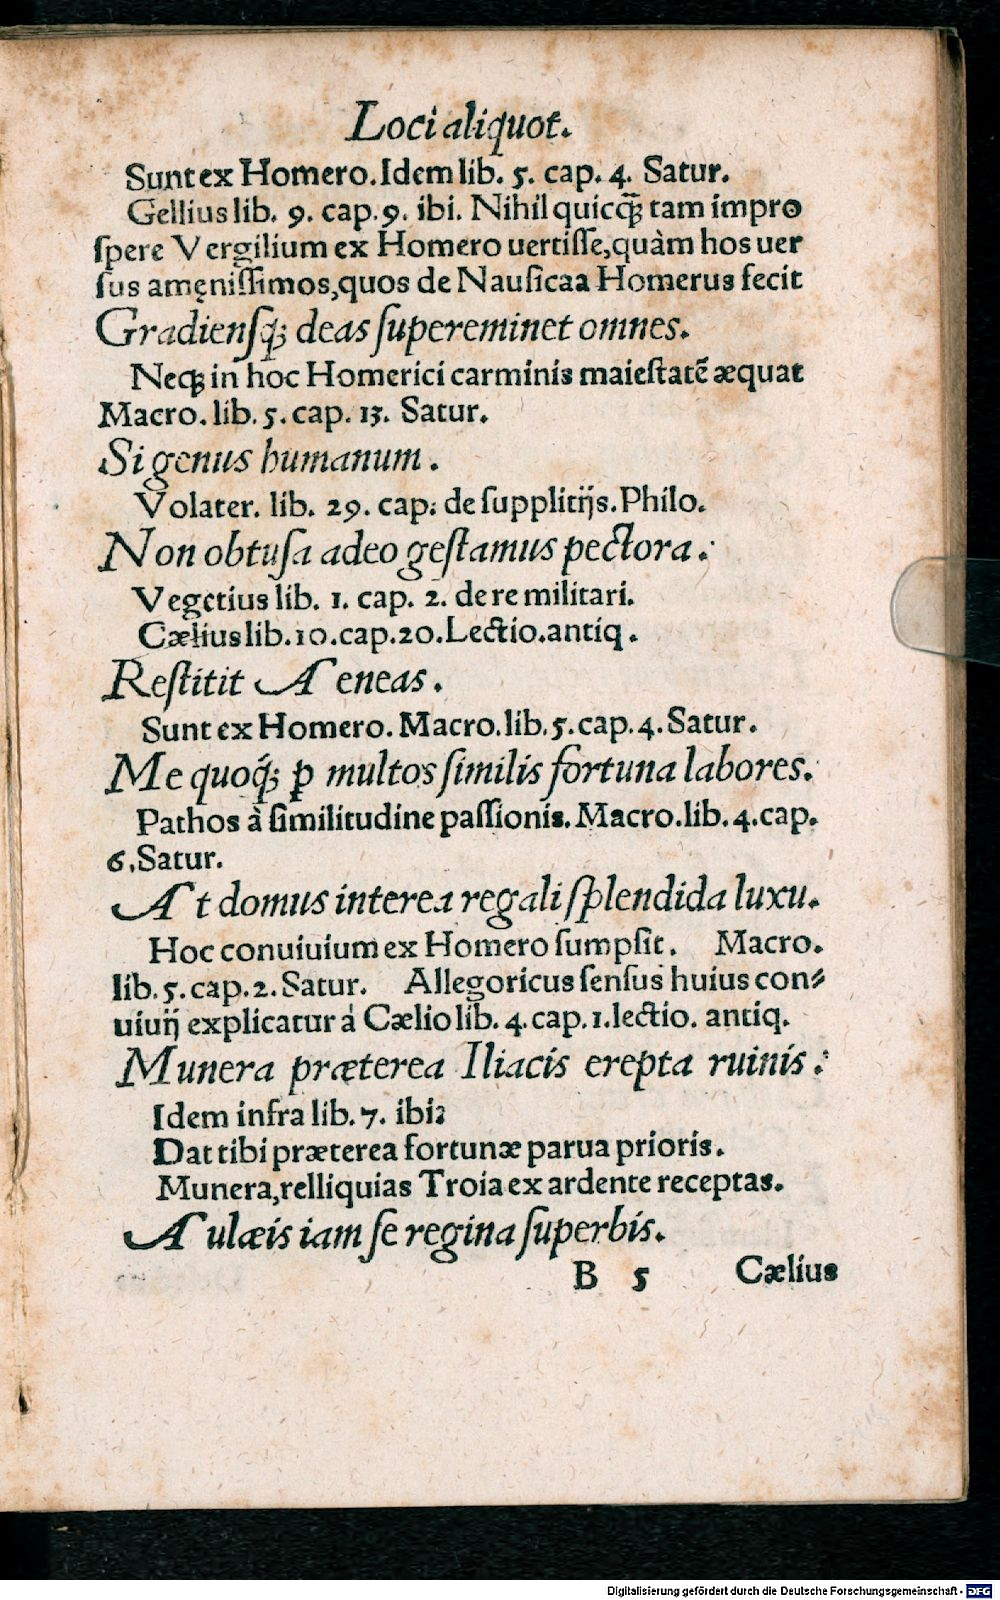 Loci aliquot.
Sunt ex Homero. Idem lib. 5. cap. 4. Satur.
Gellius lib. 9. cap. 9. ibi. Nihil quicq̃; tam impro
ſpere Vergilium ex Homero uertiſſe, quàm hos uer
ſus amęniſſimos, quos de Nauſicaa Homerus fecit
Gradienſq; deas ſupereminet omnes.
Neq; in hoc Homerici carminis maieſtatē æquat
Macro. lib. 5. cap. 13. Satur.
Si genus humanum.
Volater. lib. 29. cap: de ſupplitijs. Philo.
Non obtuſa adeo geſtamus pectora.
Vegetius lib. 1. cap. 2. de re militari.
Cælius lib. 10. cap. 20. Lectio. antiq.
Reſtitit Aeneas.
Sunt ex Homero. Macro. lib. 5. cap. 4. Satur.
Me quoq́; ꝑ multos ſimilis fortuna labores.
Pathos à ſimilitudine paſſionis. Macro. lib. 4. cap.
6. Satur.
At domus interea regali ſplendida luxu.
Hoc conuiuium ex Homero ſumpſit. Macro.
lib. 5. cap. 2. Satur. Allegoricus ſenſus huius con⸗
uiuij explicatur á Cælio lib. 4. cap. 1. lectio. antiq.
Munera præterea Iliacis erepta ruinis:
Idem infra lib. 7. ibi:
Dat tibi præterea fortunæ parua prioris.
Munera, relliquias Troia ex ardente receptas.
Aulæis iam ſe regina ſuperbis.
B 5 Cælius
Digitalisierung gefördert durch die Deutsche Forschungsgemeinschaft - DFG